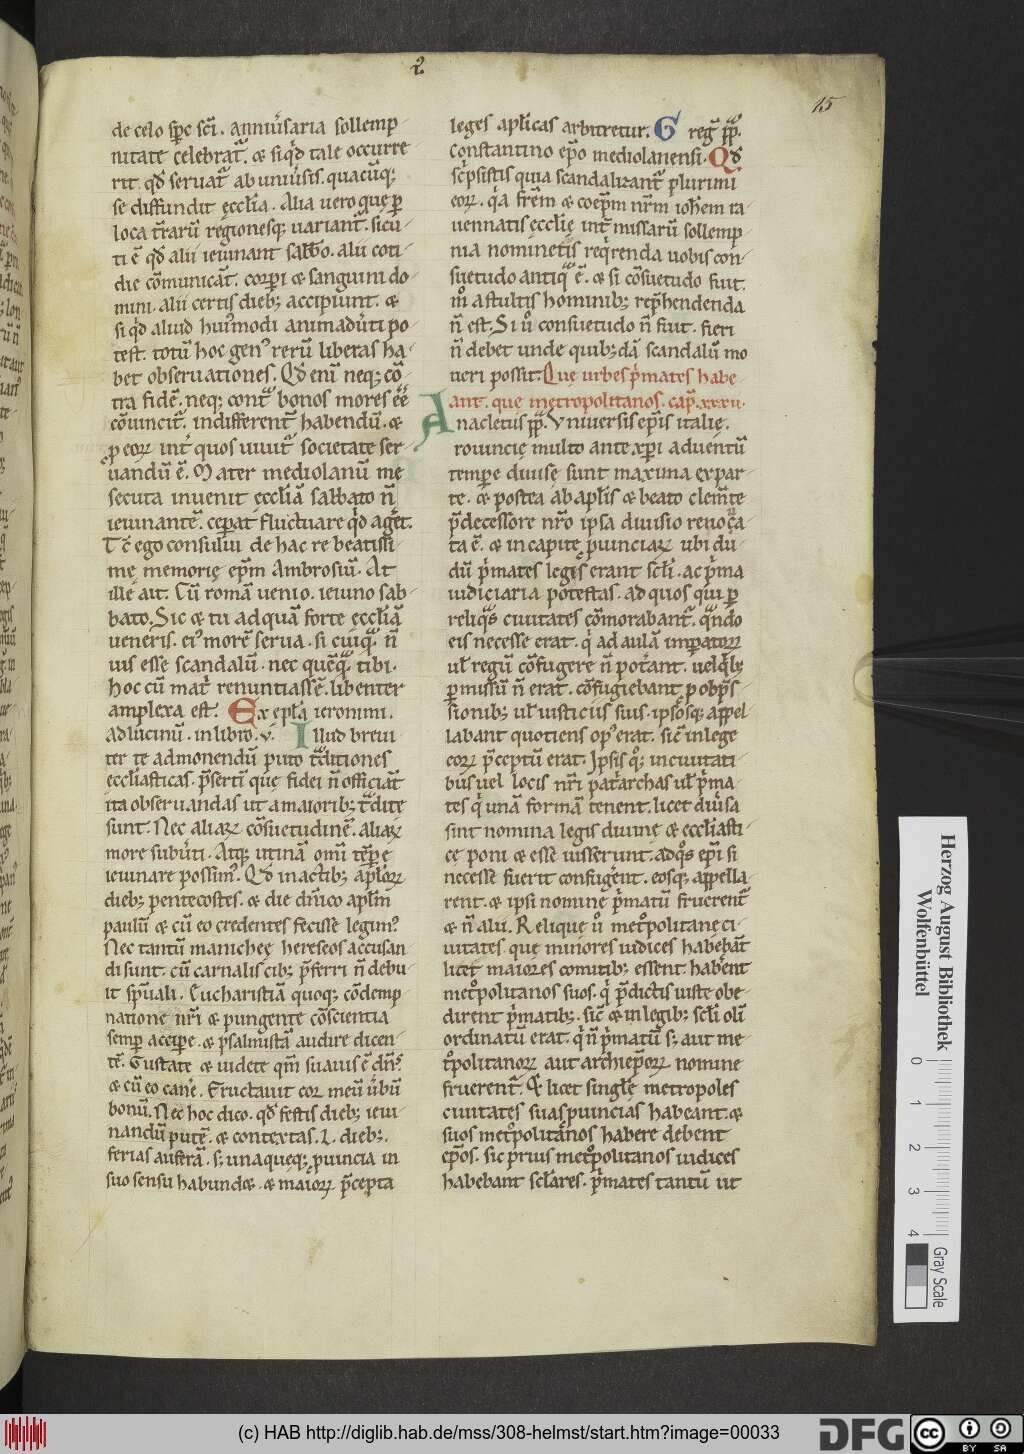 ꝛ
15
de celo sp̄c sc̄i. anniu̓saria sollemp
nitate celebrat᷑. & siq̇d tale occurre
rit qd̄ seruat᷑ ab uniu̓sis. quacūq;
se diffundit ęccl̄ia. Alia uero quę ꝑ
loca t̓rarū regionesq; uariant᷑. sicu
ti ē qd̄ alii ieiunant sabb̄o. alii coti
die cōmunicāt. corꝑi & sanguini do
mini. alii certis dieb; accipiunt. &
si qd aliud hui᷒modi animadu̓ti po
test. totū hoc gen᷒ rerū liberas ha
bet obseruationes. Qd̄ enī neq; cō
tra fidē. neq; cont̾ bonos mores eē
cōuincit᷑. indifferent̓ habendū. &
ꝓ eoꝝ int̓ quos uiuit᷑ societate ser
uandū ē. Mater mediolanū me
secuta inuenit eccl̄iā sabbato n̄
ieiunantē. ceꝑat fluctuare qḋ aget.
Tc̄ ego consului de hac re beatissi
mę memorię ep̄m Ambrosiū. At
ille ait. Cū romā uenio. ieiuno sab
bato. Sic & tu ad quā forte eccl̄iā
ueneris. ei᷒ morē serua. si cuiq̄. n̄
uis esse scandalū. nec quēq̄ tibi.
hoc cū mat̓ renuntiassē. libenter
amplexa est. Ex epl̄a ieronimi.
ad lucinū. in libro. v. Illud breui
ter te admonendū puto t̾ditiones
eccl̄iasticas. p̄sertī quę fidei n̄ officiāt
ita obseruandas ut a maiorib; t̾ditę
sunt. Nec aliaꝝ cōsuetudinē. aliaꝝ
more subu̓ti. Atq; utinā omī tēꝑe
ieiunare possim᷒. Qd̄ in actib; aplōꝝ
dieb; pentecostes. & die dn̄ico apl̄m
paulū & cū eo credentes fecisse legim᷒
Nec tantū manicheę hereseos accusan
di sunt. cū carnalis cib; p̄ferri n̄ debu
it sp̄uali. Eucharistiā quoq; cōdemp
natione nr̄i & pungente cōscientia
semꝑ acciꝑe. & psalmistā audire dicen
tē. Gustate & uidete qm̄ suauis ē dn̄s.
& cū eo canē. Eructauit cor meū u̓bū
bonū. Nec hoc dico. qd̄ festis dieb; ieiu
nandū putē. & contextas. L. dieb;.
ferias auferā. s; unaqueq; ꝓuincia in
suo sensu habundet. & maioꝝ p̄cepta
leges apl̄icas arbitretur. G reḡ pp̄.
Constantino ep̄o mediolanensi. Qd̄
sc̓psistis quia scandalizant᷑ plurimi
eoꝝ. q̇a fr̄em & coep̄m nr̄m ioh̄em ra
uennatis ęccl̄ię int̓ missarū sollemp
nia nominetis req̇renda uobis con
suetudo antiq̾ ē. & si cōsuetudo fuit.
m̊ a stultis hominib; rep̓hendenda
n̄ est. Si u̓o consuetudo n̄ fuit. fieri
n̄ debet unde quib;dā scandalū mo
ueri possit. Que urbes p̓mates habe
ant. que metropolitanos. cap̄. xxxii.
Anacletus pp̄. Vniuersis ep̄is italie.
rouincię multo ante xp̄i aduentū
temꝑe diuisę sunt maxima ex par
te. & postea ab apl̄is & beato clem̄te
p̄decessore nr̄o ipsa diuisio renoua
ta ē. & in capite ꝓuinciaꝝ ubi du
dū p̓mates legis erant scl̄i. ac p̓ma
iudiciaria potestas. ad quos qui ꝑ
reliq̾s ciuitates cōmorabant᷑. q̾ndo
eis necesse erat. q̇ ad aulā imꝑatoꝝ
ul̄ regū cōfugere n̄ pot̓ant. uel q̇b;
ꝑmissū n̄ erat. cōfugiebant ꝓ opp̄s
sionib; ul̄ iusticiis suis. ipsosq; appel
labant quotiens op᷒ erat. sic̄ in lege
eoꝝ p̄ceptū erat. Ipsis q; in ciuitati
bus uel locis nr̄i pat̓archas ul̄ p̓ma
tes q̇ unā formā tenent. licet diu̓sa
sint nomina legis diuinę & eccl̄iasti
cę poni & esse iusserunt. ad q̊s ep̄i si
necesse fuerit confugent. eosq; appella
rent. & ipsi nomine p̓matū fruerent᷑
& n̄ alii. Relique u̓o met̊politanę ci
uitates que minores iudices habebāt
licet maiores comitib; essent. habērent
met̊politanos suos. q̇ p̄dictis iuste obe
dirent p̓matib;. sic̄ & in legib; scl̄i olī
ordinatū erat. q̇ n̄ p̓matū s; aut me
t̊politanoꝝ aut archiep̄oꝝ nomine
fruerent᷑. Et licet singulę metropoles
ciuitates suas ꝓuincias habeant. &
suos met̊politanos habere debent
ep̄os. sic p̓rius met̊politanos iudices
habebant scl̄ares. p̓mates tantū ut
Herzog August Bibliothek
Wolfenbüttel
0 1 2 3 4
Gray Scale
(c) HAB http://diglib.hab.de/mss/308-helmst/start.htm?image=00033
DFG
cc BY SA